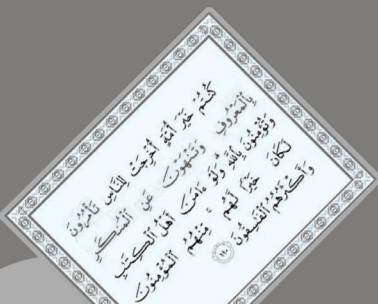 كُنتُمْ خَيْرَ أُمَّةٍ أُخْرِجَتْ لِلنَّاسِ تَأْمُرُونَ
بِالْمَعْرُوفِ وَتَنْهَوْنَ عَنِ الْمُنكَرِ
وَتُؤْمِنُونَ بِاللَّهِ وَلَوْ ءَامَنَ أَهْلُ الْكِتَٰبِ
لَكَانَ خَيْرًا لَّهُم مِّنْهُمُ الْمُؤْمِنُونَ
وَأَكْثَرُهُمُ الْفَٰسِقُونَ ١١٠